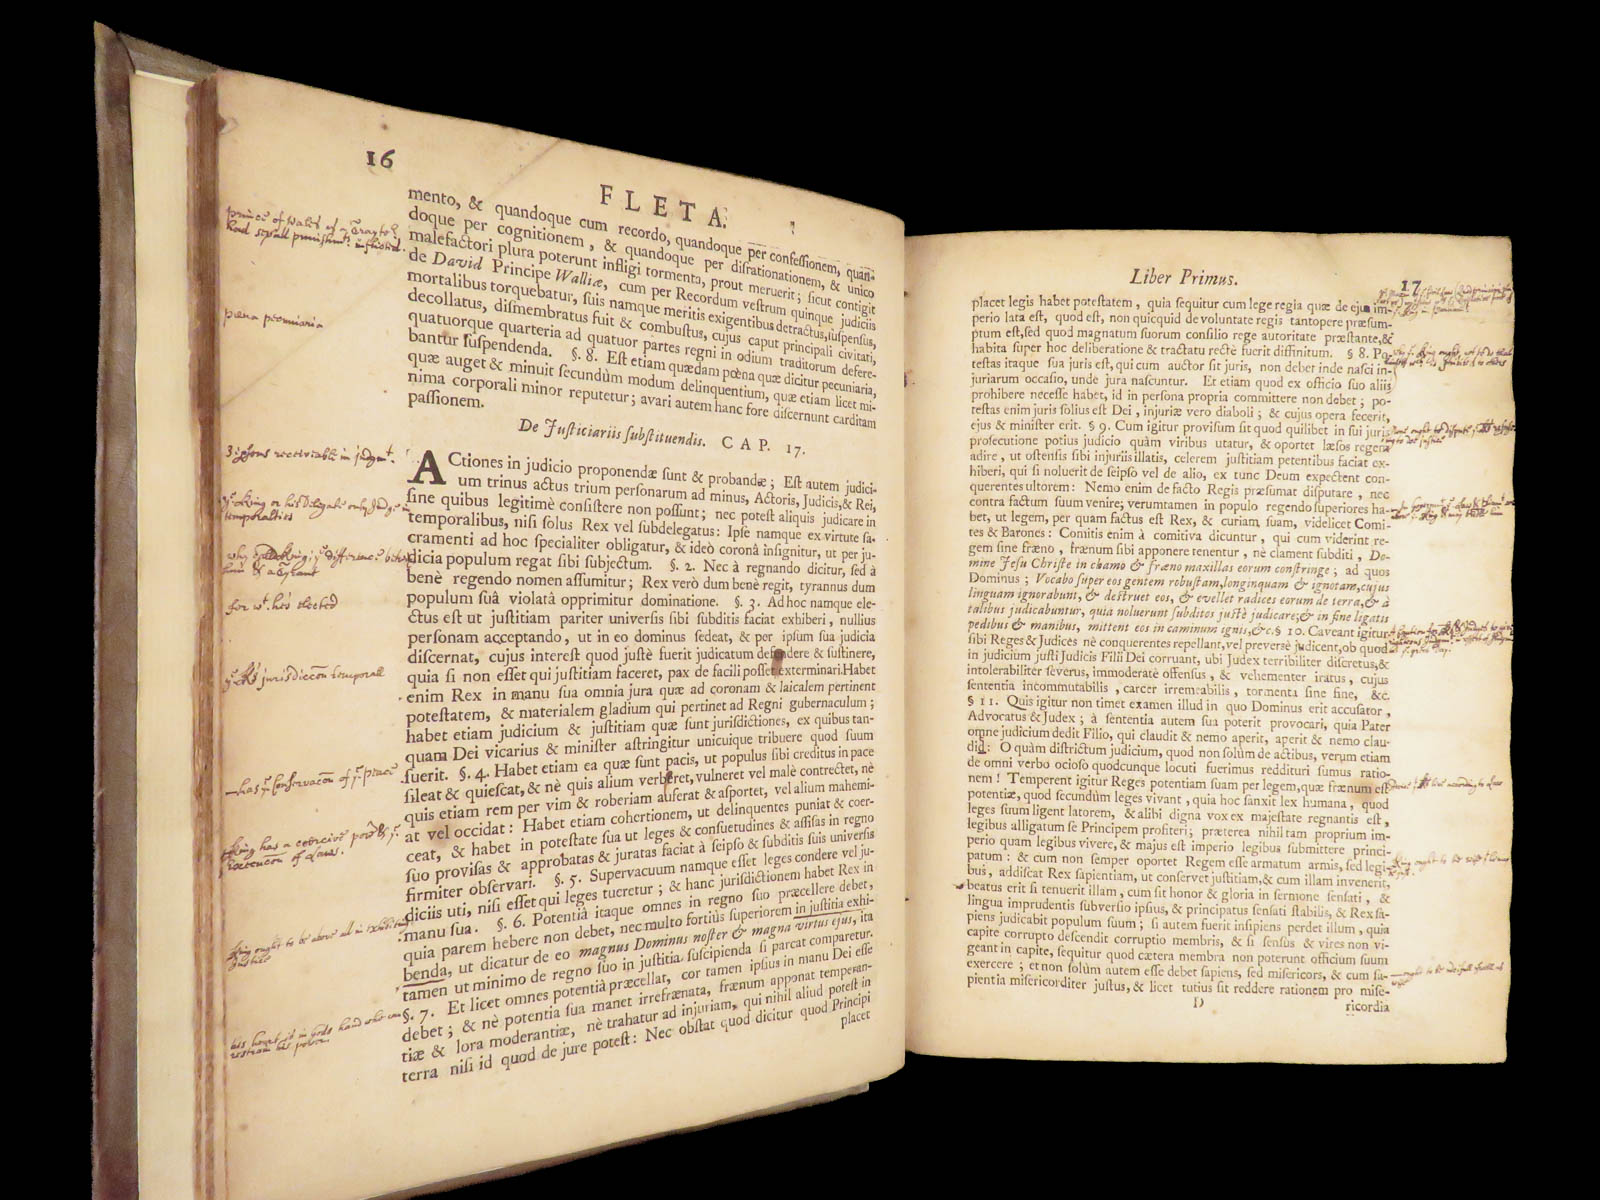 16
FLETA.
mento, & quandoque cum recordo, quandoque per confessionem, quan-
doque per cognitionem, & quandoque per disrationationem, & unico
malefactori plura poterunt infligi tormenta, prout meruerit; sicut contigit
de David Principe Walliæ, cum per Recordum vestrum quinque judiciis
mortalibus torquebatur, suis namque meritis exigentibus detractus, suspensus,
decollatus, dismembratus fuit & combustus, cujus caput principali civitati,
quatuorque quarteria ad quatuor partes regni in odium traditorum defere-
bantur suspendenda. §. 8. Est etiam quædam pœna quæ dicitur pecuniaria,
quæ auget & minuit secundùm modum delinquentium, quæ etiam licet mi-
nima corporali minor reputetur; avari autem hanc fore discernunt carditam
passionem.
De Justiciariis substituendis. CAP. 17.
ACtiones in judicio proponendæ sunt & probandæ; Est autem judici-
um trinus actus trium personarum ad minus, Actoris, Judicis, & Rei,
sine quibus legitimè consistere non possunt; nec potest aliquis judicare in
temporalibus, nisi solus Rex vel subdelegatus: Ipse namque ex virtute sa-
cramenti ad hoc specialiter obligatur, & ideò coronâ insignitur, ut per ju-
dicia populum regat sibi subjectum. §. 2. Nec à regnando dicitur, sed à
benè regendo nomen assumitur; Rex verò dum benè regit, tyrannus dum
populum suâ violatâ opprimitur dominatione. §. 3. Ad hoc namque ele-
ctus est ut justitiam pariter universis sibi subditis faciat exhiberi, nullius
personam acceptando, ut in eo dominus sedeat, & per ipsum sua judicia
discernat, cujus interest quod justè fuerit judicatum defendere & sustinere,
quia si non esset qui justitiam faceret, pax de facili posset exterminari. Habet
enim Rex in manu sua omnia jura quæ ad coronam & laicalem pertinent
potestatem, & materialem gladium qui pertinet ad Regni gubernaculum;
habet etiam judicium & justitiam quæ sunt jurisdictiones, ex quibus tan-
quam Dei vicarius & minister astringitur unicuique tribuere quod suum
fuerit. §. 4. Habet etiam ea quæ sunt pacis, ut populus sibi creditus in pace
sileat & quiescat, & nè quis alium verberet, vulneret vel malè contrectet, nè
quis etiam rem per vim & roberiam auferat & asportet, vel alium mahemi-
at vel occidat: Habet etiam cohertionem, ut delinquentes puniat & coer-
ceat, & habet in potestate sua ut leges & consuetudines & assisas in regno
suo provisas & approbatas & juratas faciat à seipso & subditis suis universis
firmiter observari. §. 5. Supervacuum namque esset leges condere vel ju-
diciis uti, nisi esset qui leges tueretur; & hanc jurisdictionem habet Rex in
manu sua. §. 6. Potentiâ itaque omnes in regno suo præcellere debet,
quia parem hebere non debet, nec multo fortiùs superiorem in justitia exhi-
benda, ut dicatur de eo magnus Dominus noster & magna virtus ejus, ita
tamen ut minimo de regno suo in justitia suscipienda si parcat comparetur.
§. 7. Et licet omnes potentiâ præcellat, cor tamen ipsius in manu Dei esse
debet; & nè potentia sua manet irrefrænata, frænum apponat temperan-
tiæ & lora moderantiæ, nè trahatur ad injuriam, qui nihil aliud potest in
terra nisi id quod de jure potest: Nec obstat quod dicitur quod Principi
placet
pœna pecuniaria
for wt. he's elected
Liber Primus.
17
placet legis habet potestatem, quia sequitur cum lege regia quæ de ejus im-
perio lata est, quod est, non quicquid de voluntate regis tantopere præsum-
ptum est, sed quod magnatum suorum consilio rege autoritate præstante, &
habita super hoc deliberatione & tractatu rectè fuerit diffinitum. § 8. Po-
testas itaque sua juris est, qui cum auctor sit juris, non debet inde nasci in-
juriarum occasio, undè jura nascuntur. Et etiam quod ex officio suo aliis
prohibere necesse habet, id in persona propria committere non debet; po-
testas enim juris solius est Dei, injuriæ vero diaboli; & cujus opera fecerit,
ejus & minister erit. § 9. Cum igitur provisum sit quod quilibet in sui juris
prosecutione potius judicio quàm viribus utatur, & oportet læsos regem
adire, ut ostensis sibi injuriis illatis, celerem justitiam petentibus faciat ex-
hiberi, qui si noluerit de seipso vel de alio, ex tunc Deum expectent con-
querentes ultorem: Nemo enim de facto Regis præsumat disputare, nec
contra factum suum venire; verumtamen in populo regendo superiores ha-
bet, ut legem, per quam factus est Rex, & curiam suam, videlicet Comi-
tes & Barones: Comitis enim à comitiva dicuntur, qui cum viderint re-
gem sine fræno, frænum sibi apponere tenentur, nè clament subditi, Do-
mine Jesu Christe in chamo & fræno maxillas eorum constringe; ad quos
Dominus; Vocabo super eos gentem robustam, longinquam & ignotam, cujus
linguam ignorabunt, & destruet eos, & evellet radices eorum de terra, & à
talibus judicabuntur, quia noluerunt subditos justè judicare; & in fine ligatis
pedibus & manibus, mittent eos in caminum ignis, &c. § 10. Caveant igitur
sibi Reges & Judices nè conquerentes repellant, vel preversè judicent, ob quod
in judicium justi Judicis Filii Dei corruant, ubi Judex terribiliter discretus, &
intolerabiliter severus, immoderatè offensus, & vehementer iratus, cujus
sententia incommutabilis, carcer irremeabilis, tormenta sine fine, &c.
§ 11. Quis igitur non timet examen illud in quo Dominus erit accusator,
Advocatus & Judex; à sententia autem sua poterit provocari, quia Pater
omne judicium dedit Filio, qui claudit & nemo aperit, aperit & nemo clau-
dit: O quàm districtum judicium, quod non solùm de actibus, verum etiam
de omni verbo ocioso quodcunque locuti fuerimus reddituri sumus ratio-
nem! Temperent igitur Reges potentiam suam per legem, quæ frænum est
potentiæ, quod secundùm leges vivant, quia hoc sanxit lex humana, quod
leges suum ligent latorem, & alibi digna vox ex majestate regnantis est,
legibus alligatum se Principem profiteri; præterea nihil tam proprium im-
perio quam legibus vivere, & majus est imperio legibus submittere princi-
patum: & cum non semper oportet Regem esse armatum armis, sed legi-
bus, addiscat Rex sapientiam, ut conservet justitiam, & cum illam invenerit,
beatus erit si tenuerit illam, cum sit honor & gloria in sermone sensati, &
lingua imprudentis subversio ipsius, & principatus sensati stabilis, & Rex sa-
piens judicabit populum suum; si autem fuerit insipiens perdet illum, quia
capite corrupto descendit corruptio membris, & si sensus & vires non vi-
geant in capite, sequitur quod cætera membra non poterunt officium suum
exercere; et non solùm autem esse debet sapiens, sed misericors, & cum sa-
pientia misericorditer justus, & licet tutius sit reddere rationem pro mise-
D
ricordia